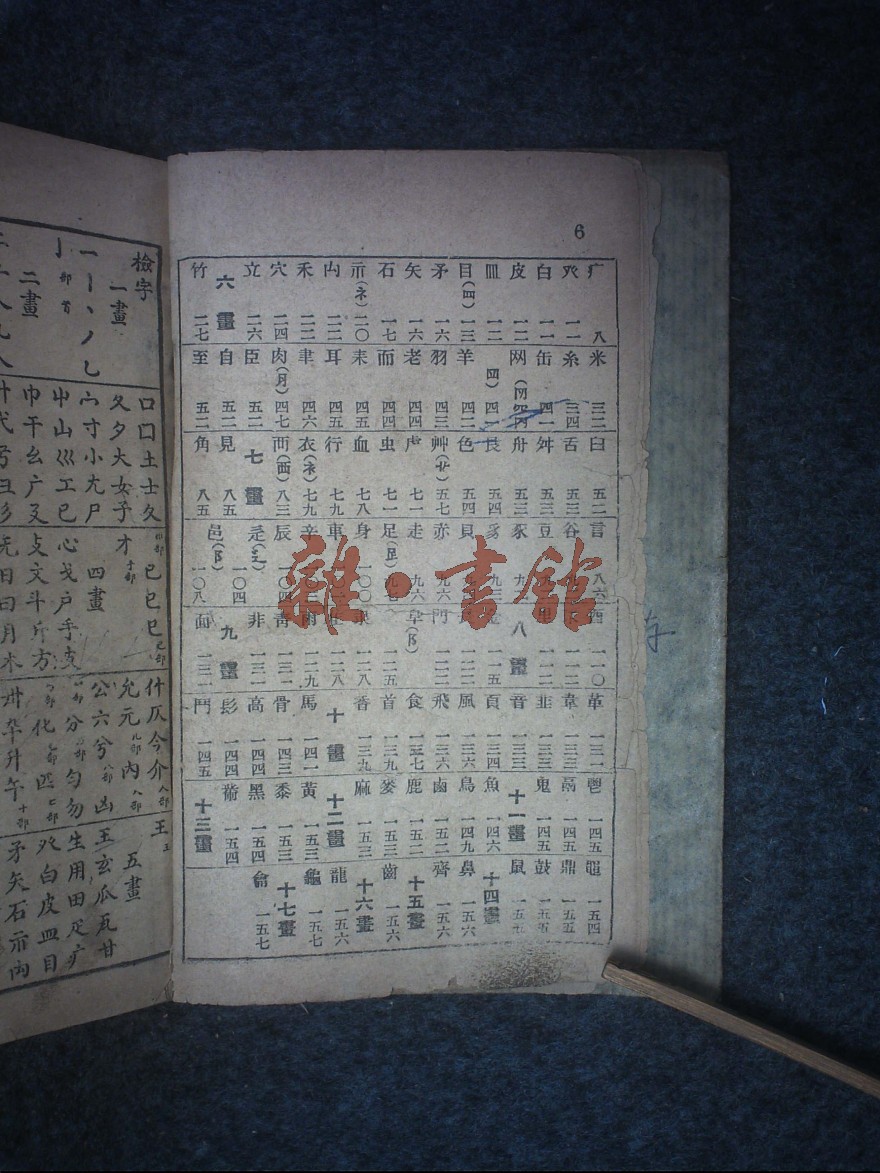 6
疒 八
癶 一一
白 一一
皮 一二
皿 一二
目(罒) 一三
矛 一六
矢 一六
石 一七
示(礻) 二〇
禸 二二
禾 二二
穴 二四
立 二六
六畫
竹 二七
米 三二
糸 三四
缶 四一
网 四一
羊 四二
羽 四三
老 四四
而 四四
耒 四五
耳 四五
聿 四六
肉(月) 四七
臣 五二
自 五二
至 五二
臼 五二
舌 五三
舛 五三
舟 五三
艮 五四
色 五四
艸(艹) 五七
虍 七一
虫 七一
血 七八
行 七九
衣(衤) 七九
襾(西) 八三
七畫
見 八五
角 八五
言 八六
谷
豆
豕
豸 九三
貝
赤 九六
走 九六
足(𧾷)
身 一〇〇
車
辛
辰 一〇四
辵(辶) 一〇四
邑(阝) 一〇八
酉 一一〇
一一二
一一二
八畫
一一五
門 一二二
阜(阝) 一二五
一二八
一二八
雨 一二九
靑 一三一
非 一三一
九畫
面 一三一
革 一三一
韋 一三三
韭 一三三
音 一三三
頁 一三四
風 一三六
飛 一三六
食 一三七
首 一三九
香 一三九
十畫
馬 一四一
骨 一四三
高 一四四
髟 一四四
鬥 一四五
鬯 一四五
鬲 一四五
鬼 一四五
十一畫
魚 一四六
鳥 一四九
鹵 一五二
鹿 一五二
麥 一五三
麻 一五三
十二畫
黃 一五三
黍 一五三
黑 一五四
黹 一五四
十三畫
黽 一五四
鼎 一五五
鼓 一五五
鼠 一五五
十四畫
鼻 一五六
齊 一五六
十五畫
齒 一五六
十六畫
龍 一五六
龜 一五七
十七畫
龠 一五七
雜·書館
檢字
一畫
一丨丶丿乙
亅部首
二畫
口囗土士夂
夊夕大女子
宀寸小尢尸
屮山巛工已
巾干幺广廴
巳已巳己部
才手部
四畫
心戈戶手支
攴文斗斤方
无日曰月木
什仄今介人部
允元儿部內入部
公六兮八部凶
分勻勿
化匹
卅卆升午十部
王
五畫
玉玄瓜瓦甘
生用田疋疒
癶白皮皿目
矛矢石示禸